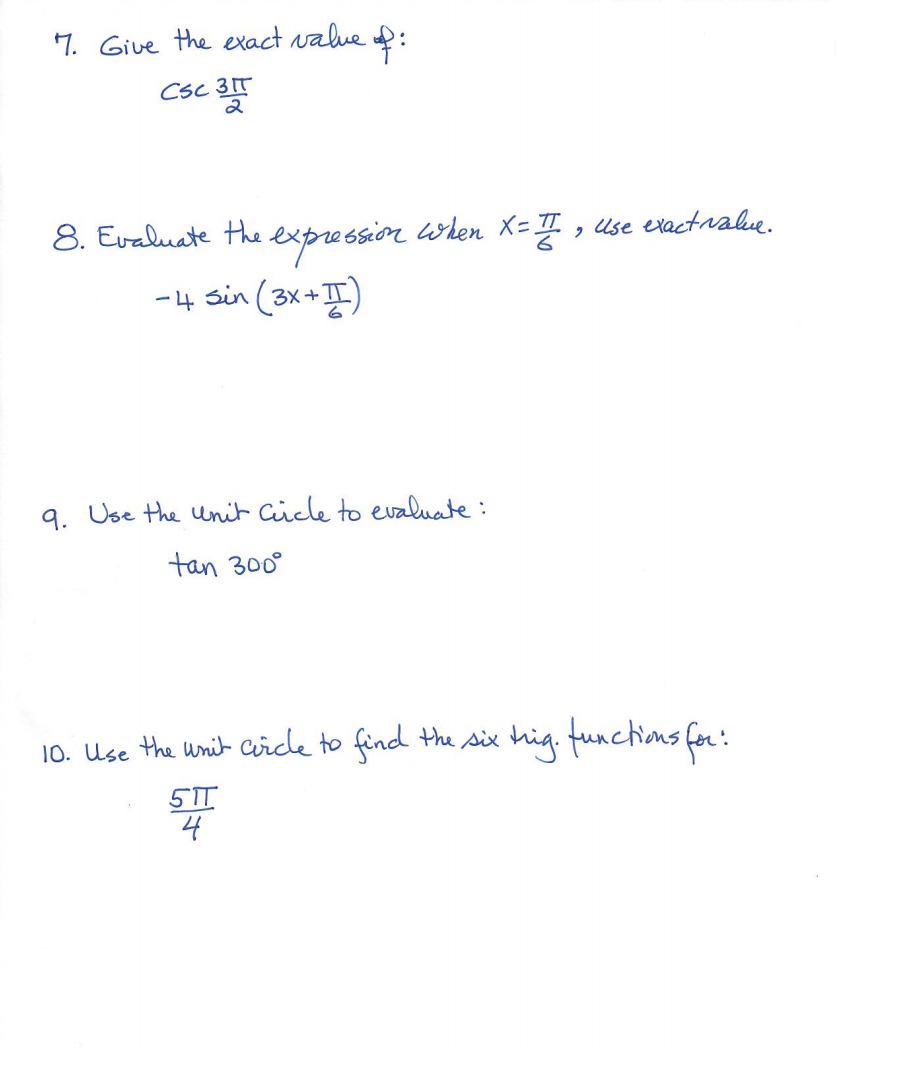 7. Give the exact value of:
csc 3π/2
8. Evaluate the expression when x = π/6, use exact value.
-4 sin (3x + π/6)
9. Use the unit circle to evaluate:
tan 300°
10. Use the unit circle to find the six trig. functions for:
5π/4